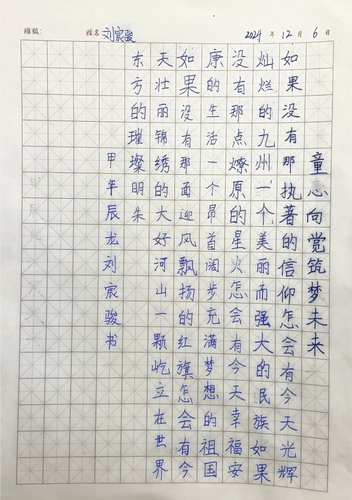 班级: 姓名 刘宸骏 2024 年 12 月 6 日
童心向党筑梦未来
如果没有那执著的信仰怎会有今天光辉
灿烂的九州一个美丽而强大的民族如果
没有那点燎原的星火怎会有今天幸福安
康的生活一个昂首阔步充满梦想的祖国
如果没有那面迎风飘扬的红旗怎会有今
天壮丽锦绣的大好河山一颗屹立在世界
东方的璀璨明朱
甲年辰龙刘宸骏书